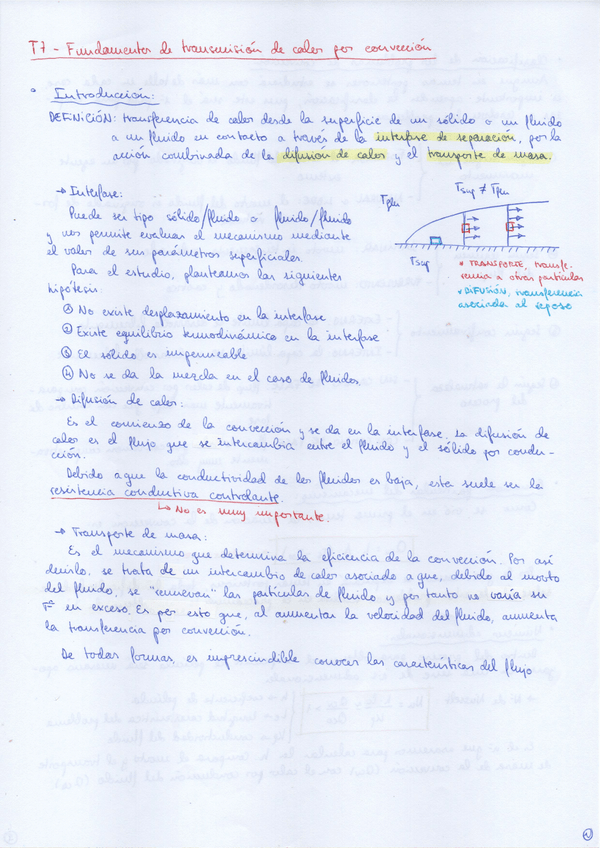 T7 - Fundamentos de transmisión de calor por convección
• Introducción:
DEFINICIÓN: transferencia de calor desde la superficie de un sólido o un fluido
a un fluido en contacto a través de la interfase de separación, por la
acción combinada de la difusión de calor y el transporte de masa.
→ Interfase:
Puede ser tipo sólido/fluido o fluido/fluido
y nos permite evaluar el mecanismo mediante
el valor de sus parámetros superficiales.
Para el estudio, planteamos las siguientes
hipótesis:
① No existe desplazamiento en la interfase
② Existe equilibrio termodinámico en la interfase
③ El sólido es impermeable
④ No se da la mezcla en el caso de fluidos.
Tflu
Tsup ≠ Tflu
Tsup
* TRANSPORTE, transfe-
rencia a otras partículas
* DIFUSIÓN, transferencia
asociada al reposo
→ Difusión de calor:
Es el comienzo de la convección y se da en la interfase. La difusión de
calor es el flujo que se intercambia entre el fluido y el sólido por conduc-
cción.
Debido a que la conductividad de los fluidos es baja, esta suele ser la
resistencia conductiva controlante.
↳ No es muy importante.
→ Transporte de masa:
Es el mecanismo que determina la eficiencia de la convección. Por así
decirlo, se trata de un intercambio de calor asociado a que, debido al movto
del fluido, se "renuevan" las partículas de fluido y por tanto no varía su
Tª en exceso. Es por esto que, al aumentar la velocidad del fluido, aumenta
la transferencia por convección.
De todas formas, es imprescindible conocer las características del flujo
1